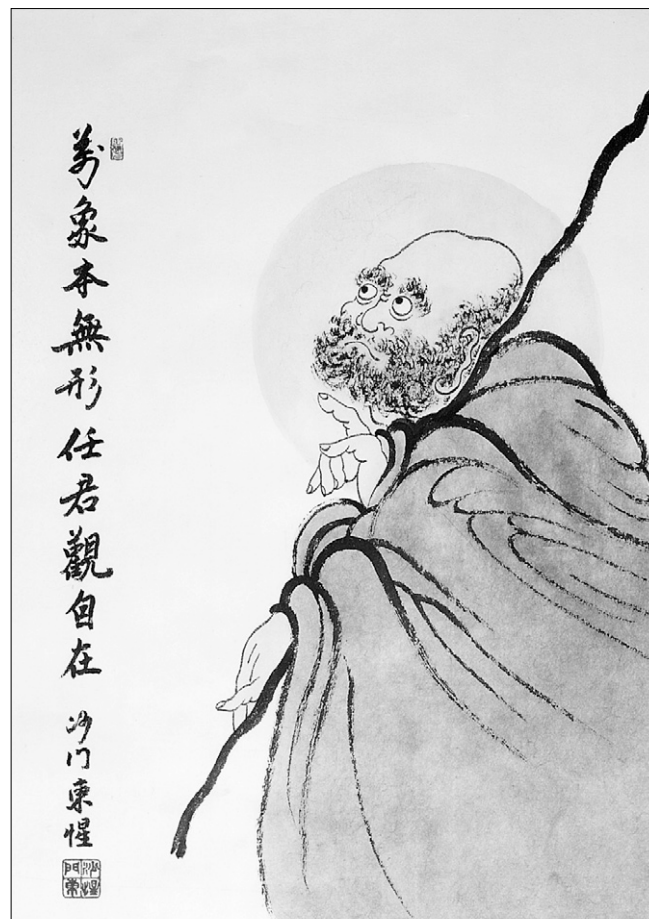 萬象本無形任君觀自在
沙门東惺
沙門東惺